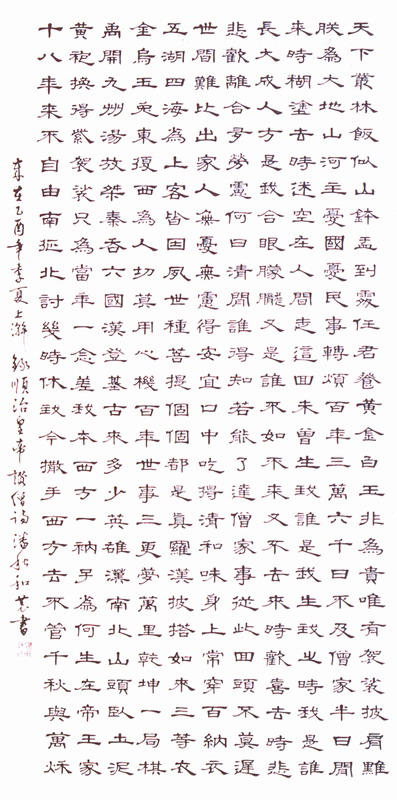 天下叢林飯似山鉢盂到處任君餐黃金白玉非為貴唯有袈裟披肩難
朕為大地山河主憂國憂民事轉煩百年三萬六千日不及僧家半日閒
來時糊塗去時迷空在人間走這回未曾生我誰是我生我之時我是誰
長大成人方是我合眼朦朧又是誰不如不來又不去來時歡喜去時悲
悲歡離合多勞慮何日清閒誰得知若能了達僧家事從此回頭不莫遲
世間難比出家人無憂無慮得安宜口中吃得清和味身上常穿百納衣
五湖四海為上客皆因夙世種菩提個個都是真羅漢披搭如來三等衣
金烏玉兔東復西為人切莫用心機百年世事三更夢萬里乾坤一局棋
禹開九州湯放桀秦吞六國漢登基古來多少英雄漢南北山頭臥土泥
黃袍換得紫袈裟只為當年一念差我本西方一衲子為何生在帝王家
十八年來不自由南征北討幾時休我今撒手西方去不管千秋與萬秋
歲在乙酉年季夏上澣錄順治皇帝讚僧詩潘秋和書